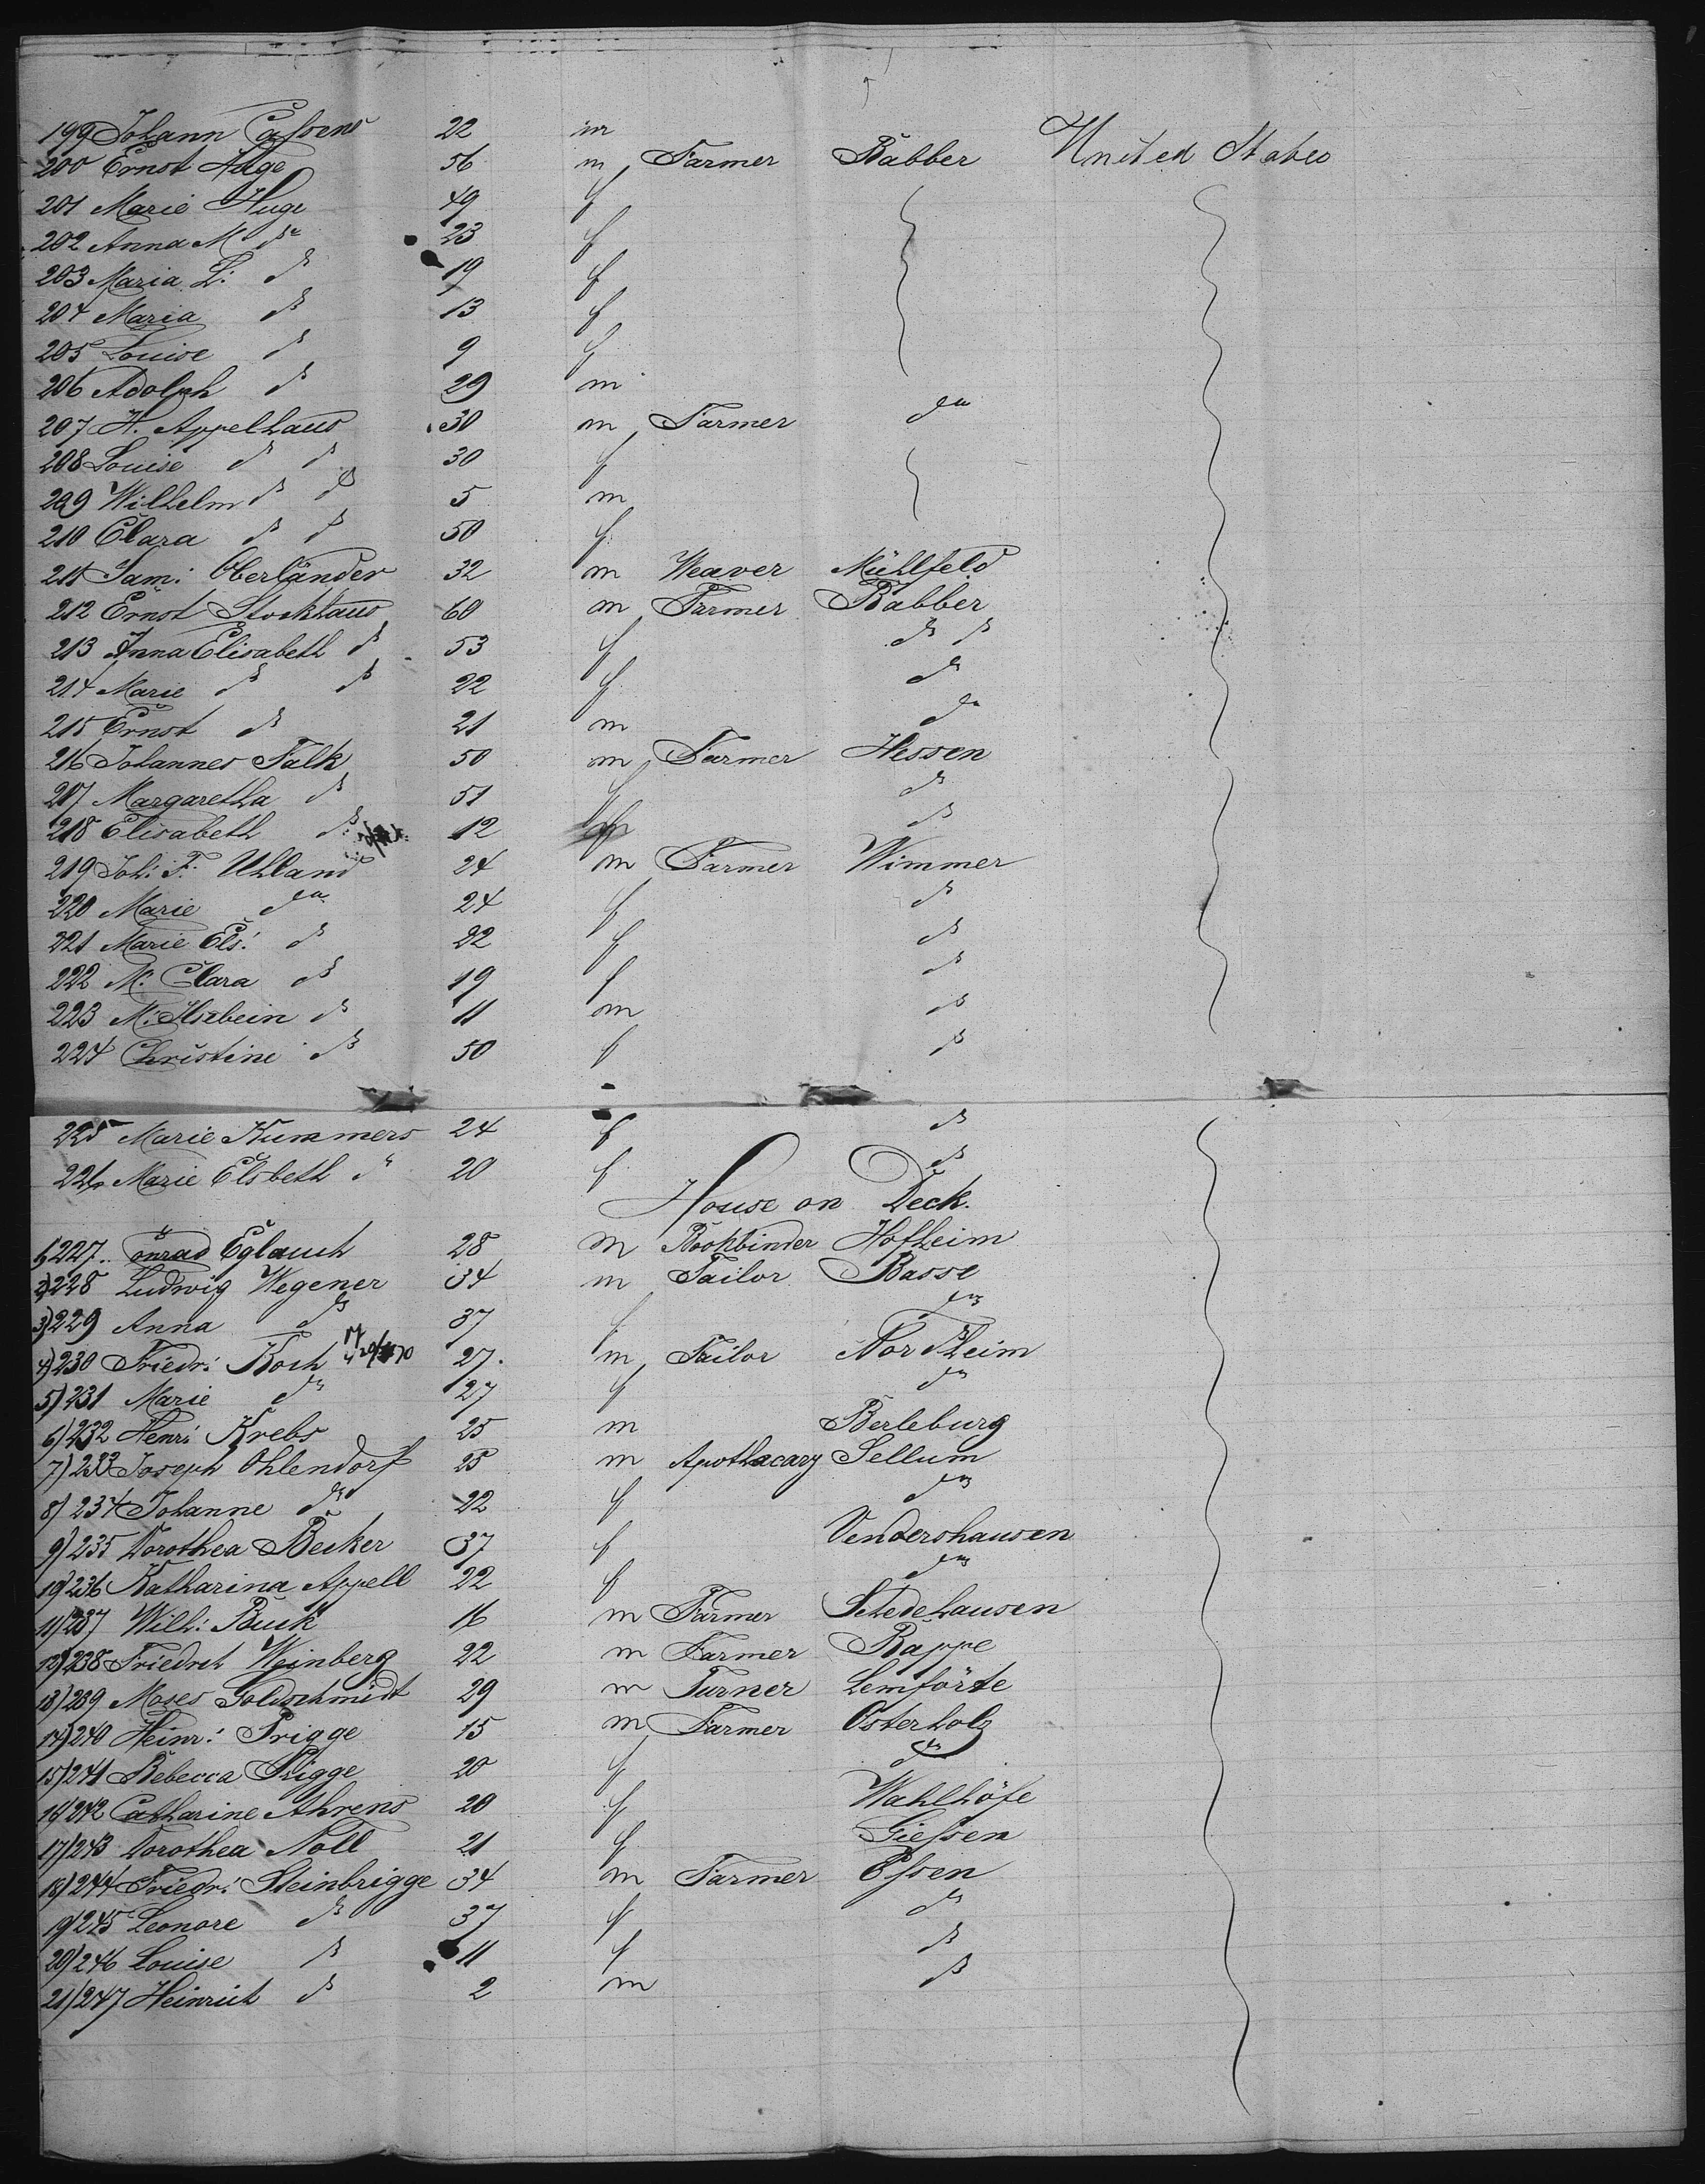 199 Johann Cassens 22 m
200 Ernst Huge 56 m Farmer Babber United States
201 Marie Huge 49 f
202 Anna M do 23 f
203 Maria L: do 19 f
204 Maria do 13 f
205 Louise do 9 f
206 Adolph do 29 m
207 H. Appelhaus 30 m Farmer do
208 Louise do do 30 f
209 Wilhelm do do 5 m
210 Clara do do 50 f
211 Sam: Oberländer 32 m Weaver Mühlfeld
212 Ernst Stockhaus 60 m Farmer Babber
213 Anna Elisabeth do 53 f do do
214 Marie do do 22 f do
215 Ernst do 21 m do
216 Johannes Falk 50 m Farmer Hessen
217 Margaretha do 51 f do
218 Elisabeth do 12 f do
219 Joh: F. Uhland 24 m Farmer Wimmer
220 Marie do 24 f do
221 Marie Els: do 22 f do
222 M. Clara do 19 f do
223 M: Ilsebein do 11 m do
224 Christine do 50 f do
225 Marie Kummers 24 f do
226 Marie Elsbeth do 20 f do
House on Deck.
1) 227 Conrad Eglauch 28 m Bookbinder Hofheim
2) 228 Ludwig Wegener 34 m Tailor Basse
3) 229 Anna do 37 f do
4) 230 Friedr: Koch 27. m Tailor Nordheim
5) 231 Marie do 27 f do
6) 232 Henri Krebs 25 m Berleburg
7) 233 Joseph Ohlendorf 25 m Apothacary Sellum
8) 234 Johanne do 22 f do
9) 235 Dorothea Becker 37 f Vendershausen
10) 236 Katharina Appell 22 f do
11) 237 Wilh: Buck 16 m Farmer Schedehausen
12) 238 Friedrch Weinberg 22 m Farmer Rappe
13) 239 Moses Goldschmidt 29 m Turner Lemförte
14) 240 Heinr: Prigge 15 m Farmer Osterholz
15) 241 Rebecca Prigge 20 f do
16) 242 Catharine Ahrens 20 f Wahlhöfe
17) 243 Dorothea Noll 21 f Giessen
18) 244 Friedr: Steinbrigge 34 m Farmer Essen
19) 245 Leonore do 37 f do
20) 246 Louise do 11 f do
21) 247 Heinrich do 2 m do